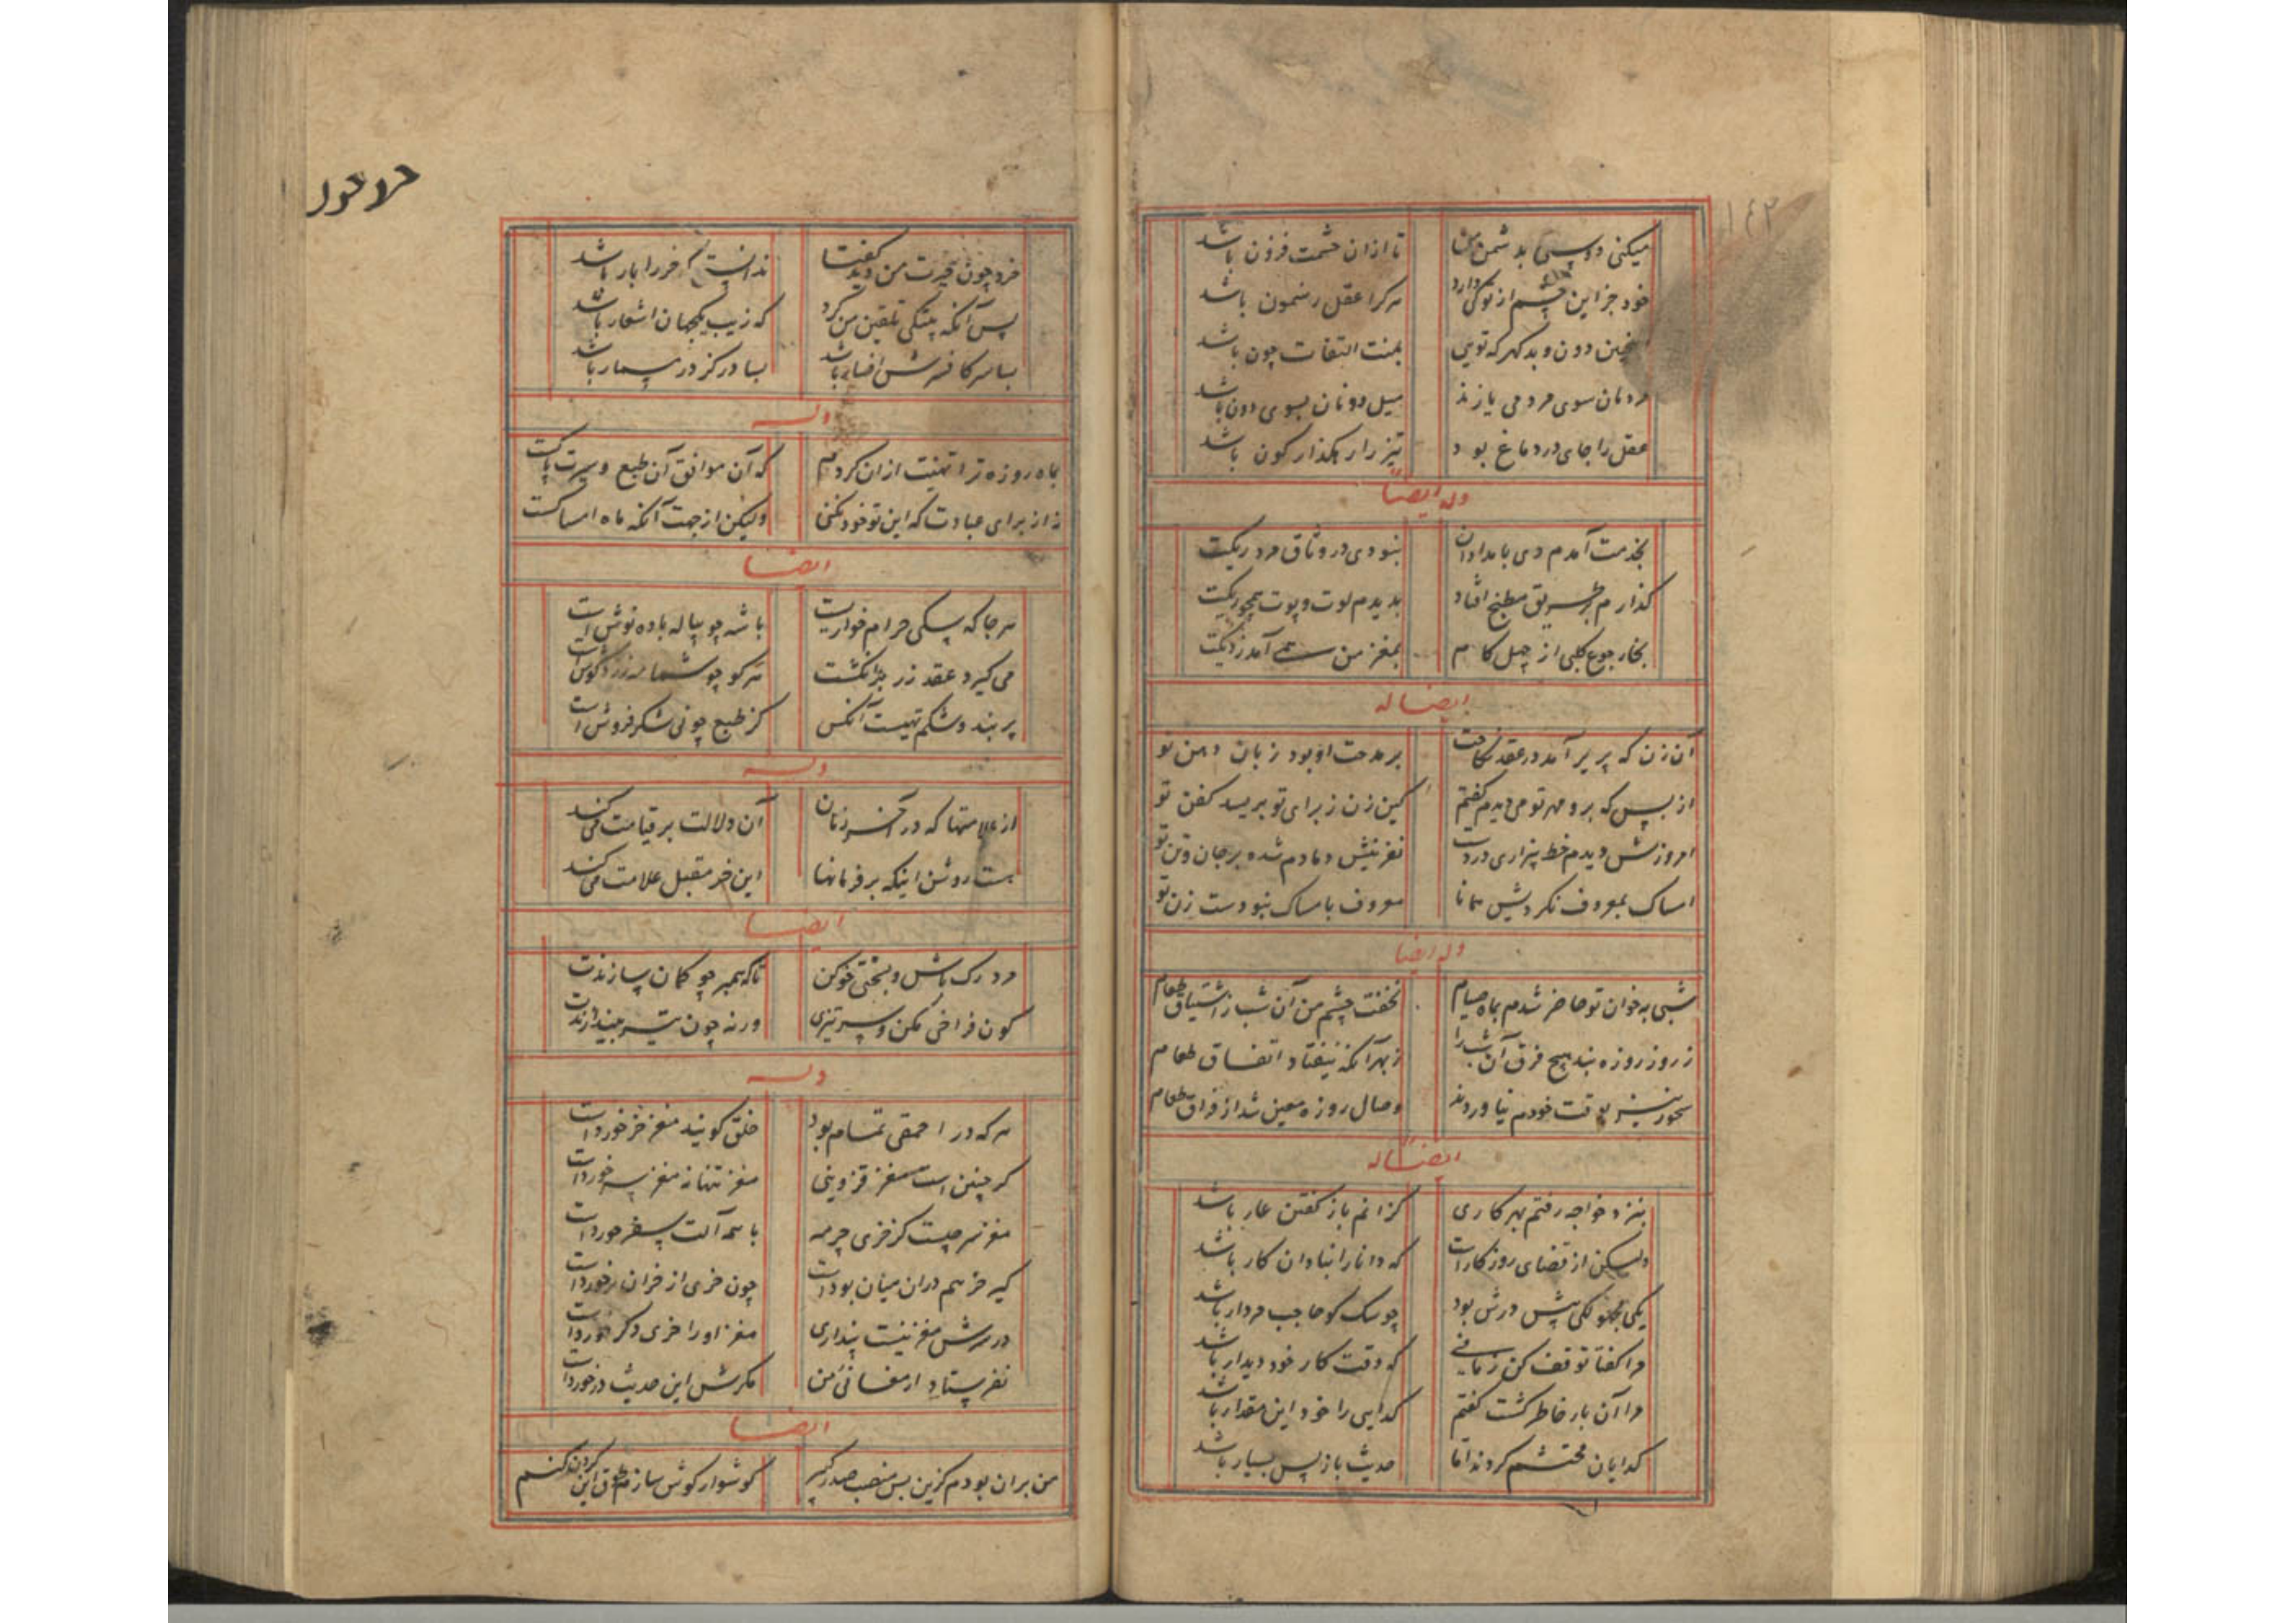 ١٤٢
میکنی دوستی بدشمن من تا ازان حشمت فزون باشد
خود جز این چشم از تو کی دارد هرکرا عقل رهنمون باشد
دون و بدکهر که تویی بمنت التفات چون باشد
سوی مردمی یازند میل دونان بسوی دون باشد
عقل را جای در دماغ بود تیز را رهکذار کون باشد
وله ایضا
بخدمت آمدم دی بامدادان نبودی در وثاق مردریکت
کذارم بر طریق مطبخ افتاد بدیدم لوت و پوت همچو ریکت
بخار جوع کلبی از چهل کام بمغز من همی آمد ز دیکت
ایضا له
آن زن که پریر آمد در عقد نکاحت بر مدحت او بود زبان و دهن تو
از بس که برو مهر تو می دیدم کفتم کین زن ز برای تو بریسد کفن تو
امروزش دیدم خط بیزاری در دست نفرینش دمادم شده بر جان و تن تو
امساک بمعروف نکردیش همانا معروف بامساک نبودست زن تو
وله ایضا
شبی به خوان تو حاضر شدم بماه صیام نخفت چشم من آن شب ز اشتیاق طعام
ز روز روزه نبد هیچ فرق آن شب را ز بهر آنکه نیفتاد اتفاق طعام
سحور نیز بوقت خودم نیاوردند وصال روزه معین شد از فراق طعام
ایضا له
بنزد خواجه رفتم بهر کاری کزانم باز کفتن عار باشد
ولیکن از قضای روزکارست که دانا را بنادان کار باشد
یکی پیش درش بود چو سک کو حاجب مردار باشد
مرا کفتا توقف کن زمانی که وقت کار خود دیدار باشد
مرا آن بار خاطر کشت کفتم کدایی را خود این مقدار باشد
کدایان محتشم کردند اما حدیث باز پس بسیار باشد
خرد چون حیرت من دید کفتا ندانستی که خر را بار باشد
پس آنکه بیتکی تلقین من کرد که زیب یکجهان اشعار باشد
بسا سر کافسرش افسار باشد بسا در کز در مسمار باشد
وله
بماه روزه ترا تهنیت ازان کردم که آن موافق آن طبع و سیرت پاکست
نه از برای عبادت که این تو خود نکنی ولیکن از جهت آنکه ماه امساکست
ایضا
هر جا که سکی حرام خواریست با شه چو پیاله باده نوش است
می کیرد عقد زر بر انکشت هر کو چو شما
پر بند و شکم تهیست آنکس کز طبع چو نی شکر فروش است
وله
از علامتها که در آخر زمان آن دلالت بر قیامت می کند
هست روشن اینکه بر فرمانها این خر مقبل علامت می کند
ایضا
مرد رک باش و بسختی خو کن تا که همبر چو کمان سازندت
کون فراخی مکن و سر تیزی ورنه چون تیر بیندازندت
وله
هر که در احمقی تمام بود خلق کویند مغز خر خوردست
کر چنین است مغز قزوینی مغز تنها نه مغز سر خوردست
مغز سر چیست کز خری چرمه با همه آلت سفر خوردست
کیر خر هم دران میان بودست چون خری از خران نر خوردست
در سرش مغز نیست پنداری مغز او را خری دکر خوردست
نفرستاد ارمغانی من مکرش این حدیث درخوردست
ایضا
من بران بودم کزین پس منصب صدر کبیر کوشوار کوش سازم طوق این کردن کنم